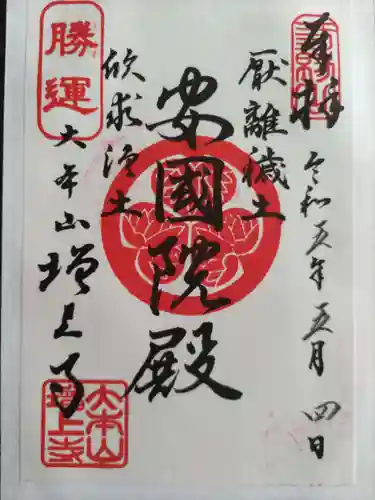 奉拝
令和五年五月四日
厭離穢土
安國院殿
欣求浄土
勝運
大本山増上寺
大本山
増上寺